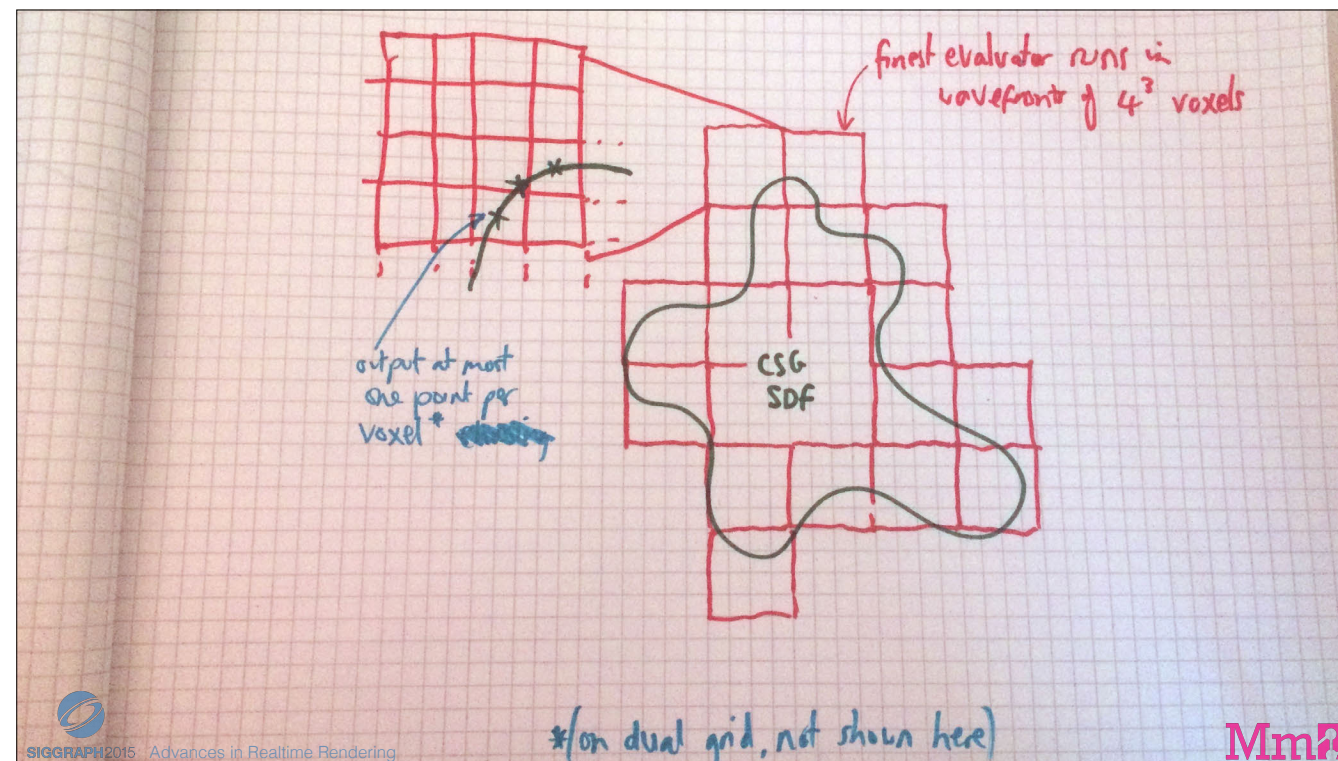 finest evaluator runs in
wavefronts of 4³ voxels
output at most
one point per
voxel*
CSG
SDF
*(on dual grid, not shown here)
SIGGRAPH2015 Advances in Realtime Rendering
Mm